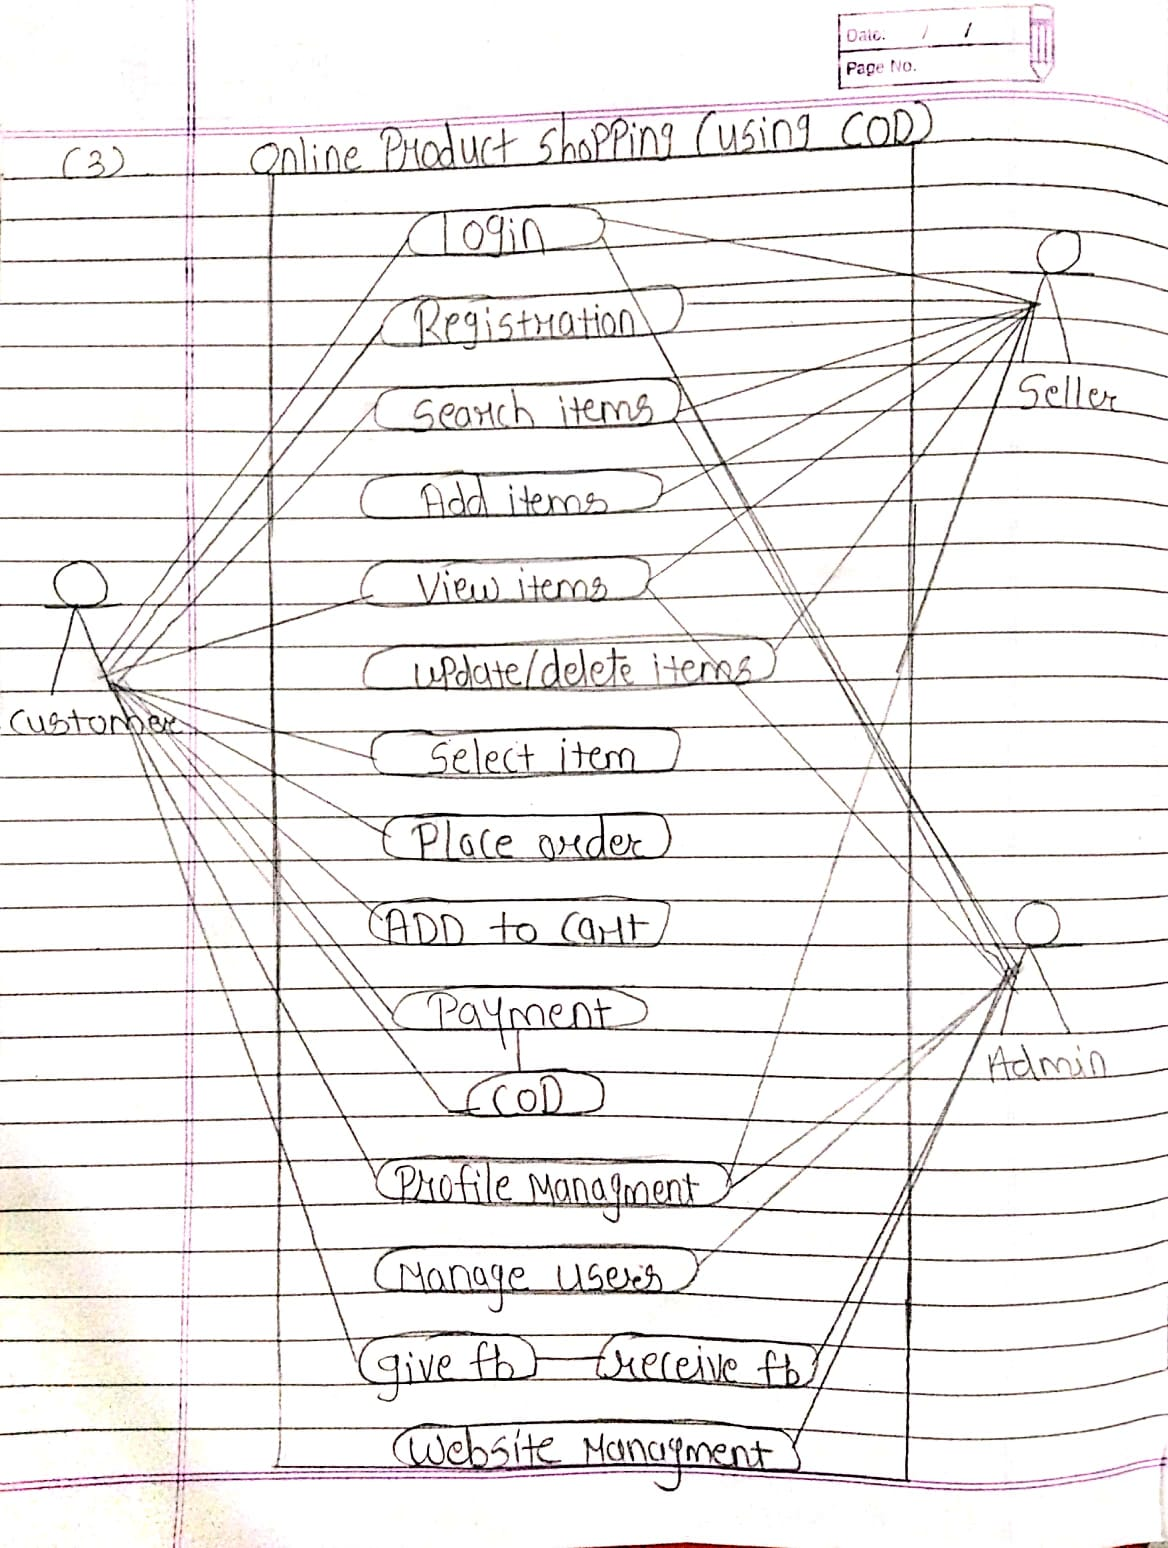 Date: / /
Page No.
(3) Online Product Shopping (using COD)
Login
Registration
Seller
Search items
Add items
View items
Update/delete items
Customer
Select item
Place order
ADD to Cart
Payment
Admin
COD
Profile Managment
Manage users
give fb receive fb
Website Managment